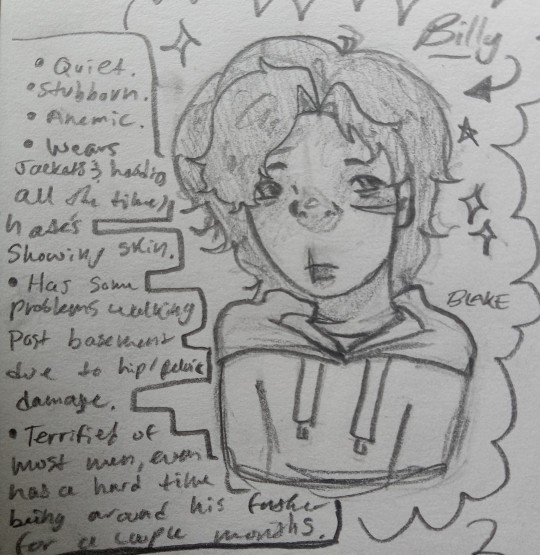 Billy
• Quiet.
• Stubborn.
• Anemic.
• Wears
Jackets &
all the time,
hates
Showing skin.
• Has some
problems walking
Post basement
due to hip/pelvic
damage.
• Terrified of
most men, even
has a hard time
being around his father
for a couple months.
BLAKE